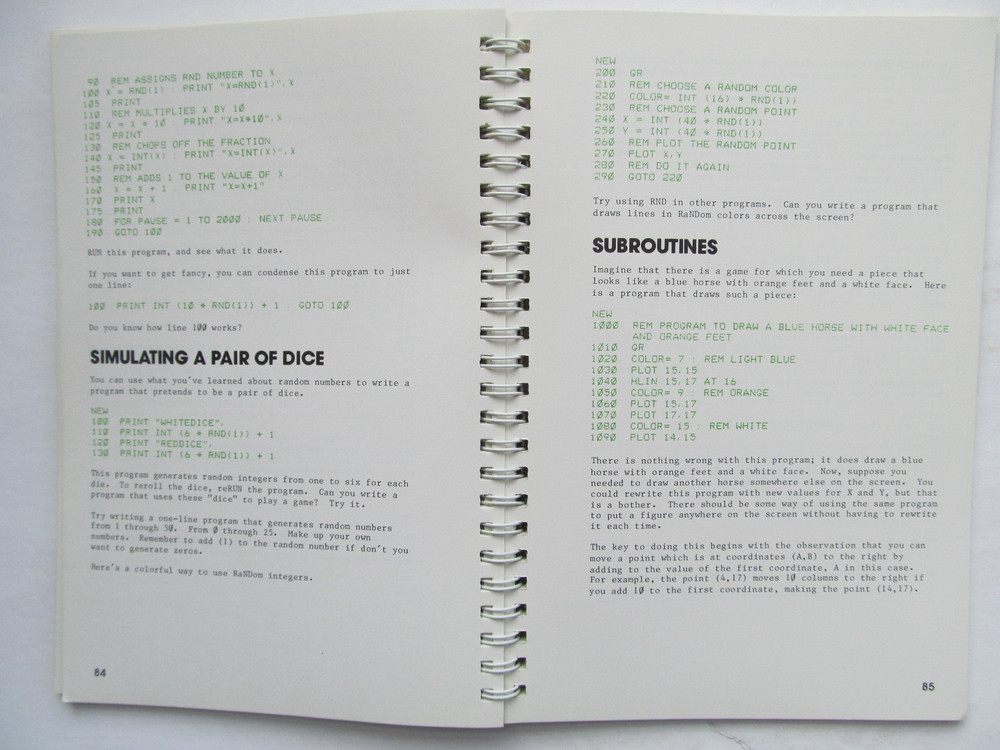 90 REM ASSIGNS RND NUMBER TO X
100 X = RND(1) : PRINT "X=RND(1)",X
105 PRINT
110 REM MULTIPLIES X BY 10
120 X = X * 10 : PRINT "X=X*10",X
125 PRINT
130 REM CHOPS OFF THE FRACTION
140 X = INT(X) : PRINT "X=INT(X)",X
145 PRINT
150 REM ADDS 1 TO THE VALUE OF X
160 X = X + 1 : PRINT "X=X+1"
170 PRINT X
175 PRINT
180 FOR PAUSE = 1 TO 2000 : NEXT PAUSE
190 GOTO 100
RUN this program, and see what it does.
If you want to get fancy, you can condense this program to just
one line:
100 PRINT INT (10 * RND(1)) + 1 : GOTO 100
Do you know how line 100 works?
SIMULATING A PAIR OF DICE
You can use what you've learned about random numbers to write a
program that pretends to be a pair of dice.
NEW
100 PRINT "WHITEDICE",
110 PRINT INT (6 * RND(1)) + 1
120 PRINT "REDDICE",
130 PRINT INT (6 * RND(1)) + 1
This program generates random integers from one to six for each
die. To reroll the dice, reRUN the program. Can you write a
program that uses these "dice" to play a game? Try it.
Try writing a one-line program that generates random numbers
from 1 through 50. From 0 through 25. Make up your own
numbers. Remember to add (1) to the random number if don't you
want to generate zeros.
Here's a colorful way to use RaNDom integers.
84
NEW
200 GR
210 REM CHOOSE A RANDOM COLOR
220 COLOR= INT (16) * RND(1))
230 REM CHOOSE A RANDOM POINT
240 X = INT (40 * RND(1))
250 Y = INT (40 * RND(1))
260 REM PLOT THE RANDOM POINT
270 PLOT X,Y
280 REM DO IT AGAIN
290 GOTO 220
Try using RND in other programs. Can you write a program that
draws lines in RaNDom colors across the screen?
SUBROUTINES
Imagine that there is a game for which you need a piece that
looks like a blue horse with orange feet and a white face. Here
is a program that draws such a piece:
NEW
1000 REM PROGRAM TO DRAW A BLUE HORSE WITH WHITE FACE
AND ORANGE FEET
1010 GR
1020 COLOR= 7 : REM LIGHT BLUE
1030 PLOT 15,15
1040 HLIN 15,17 AT 16
1050 COLOR= 9 : REM ORANGE
1060 PLOT 15,17
1070 PLOT 17,17
1080 COLOR= 15 : REM WHITE
1090 PLOT 14,15
There is nothing wrong with this program; it does draw a blue
horse with orange feet and a white face. Now, suppose you
needed to draw another horse somewhere else on the screen. You
could rewrite this program with new values for X and Y, but that
is a bother. There should be some way of using the same program
to put a figure anywhere on the screen without having to rewrite
it each time.
The key to doing this begins with the observation that you can
move a point which is at coordinates (A,B) to the right by
adding to the value of the first coordinate, A in this case.
For example, the point (4,17) moves 10 columns to the right if
you add 10 to the first coordinate, making the point (14,17).
85